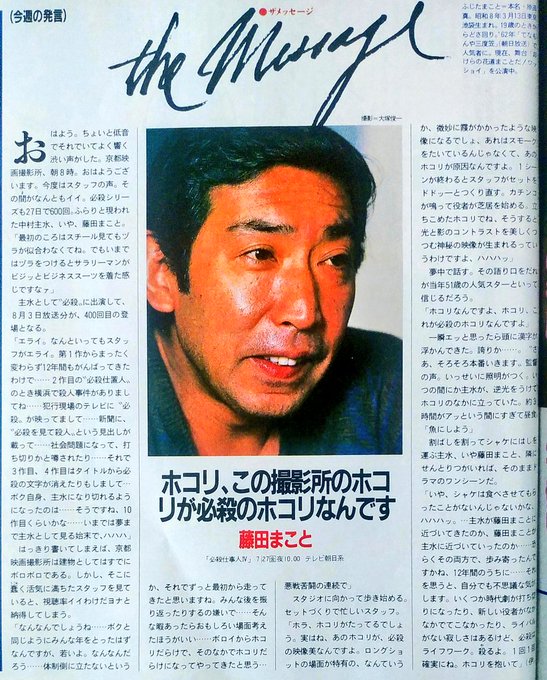 (今週の発言)
●ザメッセージ
the Message
撮影=大塚俊一
ふじたまこと=本名・原
真。昭和8年3月13日東京
池袋生まれ。19歳のとき
らどさ回り。'62年「てなも
んや三度笠」(朝日放送)で
人気者に。現在、舞台「
けらの花道まことだ!ワッ
ショイ」を公演中。
おはよう。ちょいと低音
でそれでいてよく響く
渋い声がした。京都映
画撮影所、朝8時。おはようござ
います。今度はスタッフの声。そ
の間がなんともイイ。必殺シリー
ズも27日で600回。ふらりと現われ
た中村主水、いや、藤田まこと。
「最初のころはスチール見てもヅ
ラが似合わなくてね。でもいまで
はヅラをつけるとサラリーマンが
ビジッとビジネススーツを着た感
じですなァ」
主水として“必殺”に出演して、
8月3日放送分が、400回目の登
場となる。
「エライ。なんといってもスタッ
フがエライ。第1作からまったく
変わらず12年間もがんばってきた
わけで……2作目の“必殺仕置人”
のとき横浜で殺人事件がありまし
てね……犯行現場のテレビに“必
殺”が映ってまして……新聞に、
“必殺を見て殺人”という見出しが
載って……社会問題になって、打
ち切りかと噂されたり……それで
3作目、4作目はタイトルから必
殺の文字が消えたりもしまして…
ボク自身、主水になり切れるよう
になったのは……そうですね、10
作目くらいかな……いまでは夢ま
で主水として見る始末で、ハハハ」
はっきり書いてしまえば、京都
映画撮影所は建物としてはすでに
ボロボロである。しかし、そこに
蠢く活気に満ちたスタッフを見て
いると、視聴率イイわけだヨナと
納得してしまう。
「なんなんでしょうね……ボクと
同じようにみんな年をとったはず
なんですが、若いよ。なんなんだ
ろう……体制側に立たないという
ホコリ、この撮影所のホコ
リが必殺のホコリなんです
藤田まこと
「必殺仕事人Ⅳ」7/27(金)夜10.00 テレビ朝日系
か、それでずっと最初から走って
きたと思いますね。みんな後を振
り返ったりするの嫌いで……そん
な暇あったらおもしろい場面考え
たほうがいい……ボロイからホコ
リだらけで、そのなかでホコリだ
らけになってやってきたと思う…
悪戦苦闘の連続で」
スタジオに向かって歩き始める。
セットづくりで忙しいスタッフ。
「ホラ、ホコリがたってるでしょ
う。実はね、あのホコリが、必殺
の映像美なんですよ。ロングショ
ットの場面が特有の、なんていう
か、微妙に霞がかかったような映
像になるでしょ、あれはスモーク
をたいているんじゃなくて、あの
ホコリが原因なんですよ。1シー
ンが終わるとスタッフがセットを
ドドッーとつくり直す。カチンコ
が鳴って役者が芝居を始める。立
ちこめたホコリでね、そうすると
光と影のコントラストを美しくつ
つむ神秘の映像が生まれるってい
うわけですよ、ハハハッ」
夢中で話す。その語り口をだれ
が当年51歳の人気スターといって
信じるだろう。
「ホコリなんですよ、ホコリ、こ
れが必殺のホコリなんですよ」
一瞬エッと思ったら頭に漢字が
浮かんできた。誇りか……。“さ
あ、そろそろ本番いきます。監督
の声。いっせいに照明がつく。い
つの間にか主水が、逆光をうけて
ホコリのなかに立っていた。約3
時間がアッという間にすぎて昼食
「魚にしよう」
割ばしを割ってシャケにはしを
運ぶ主水、いや藤田まこと、隣に
せんとりつがいれば、そのままド
ラマのワンシーンだ。
「いや、シャケは食べさせてもら
ったことがないんじゃないかな、
ハハハッ。……主水が藤田まことに
近づいてきたのか、藤田まことが
主水に近づいていったのか……恐
らくその両方で、歩み寄ったんで
すかね、12年間のうちに……それ
を思うと、自分でも不思議な気が
します。いくつか時代劇が打ち切
りになったり、新しい役者がなか
なかでてこなかったり、ライバル
がない寂しさはあるけど、必殺は
ライフワーク。殺るよ。1回1回
確実にね。ホコリを抱いて」(伊